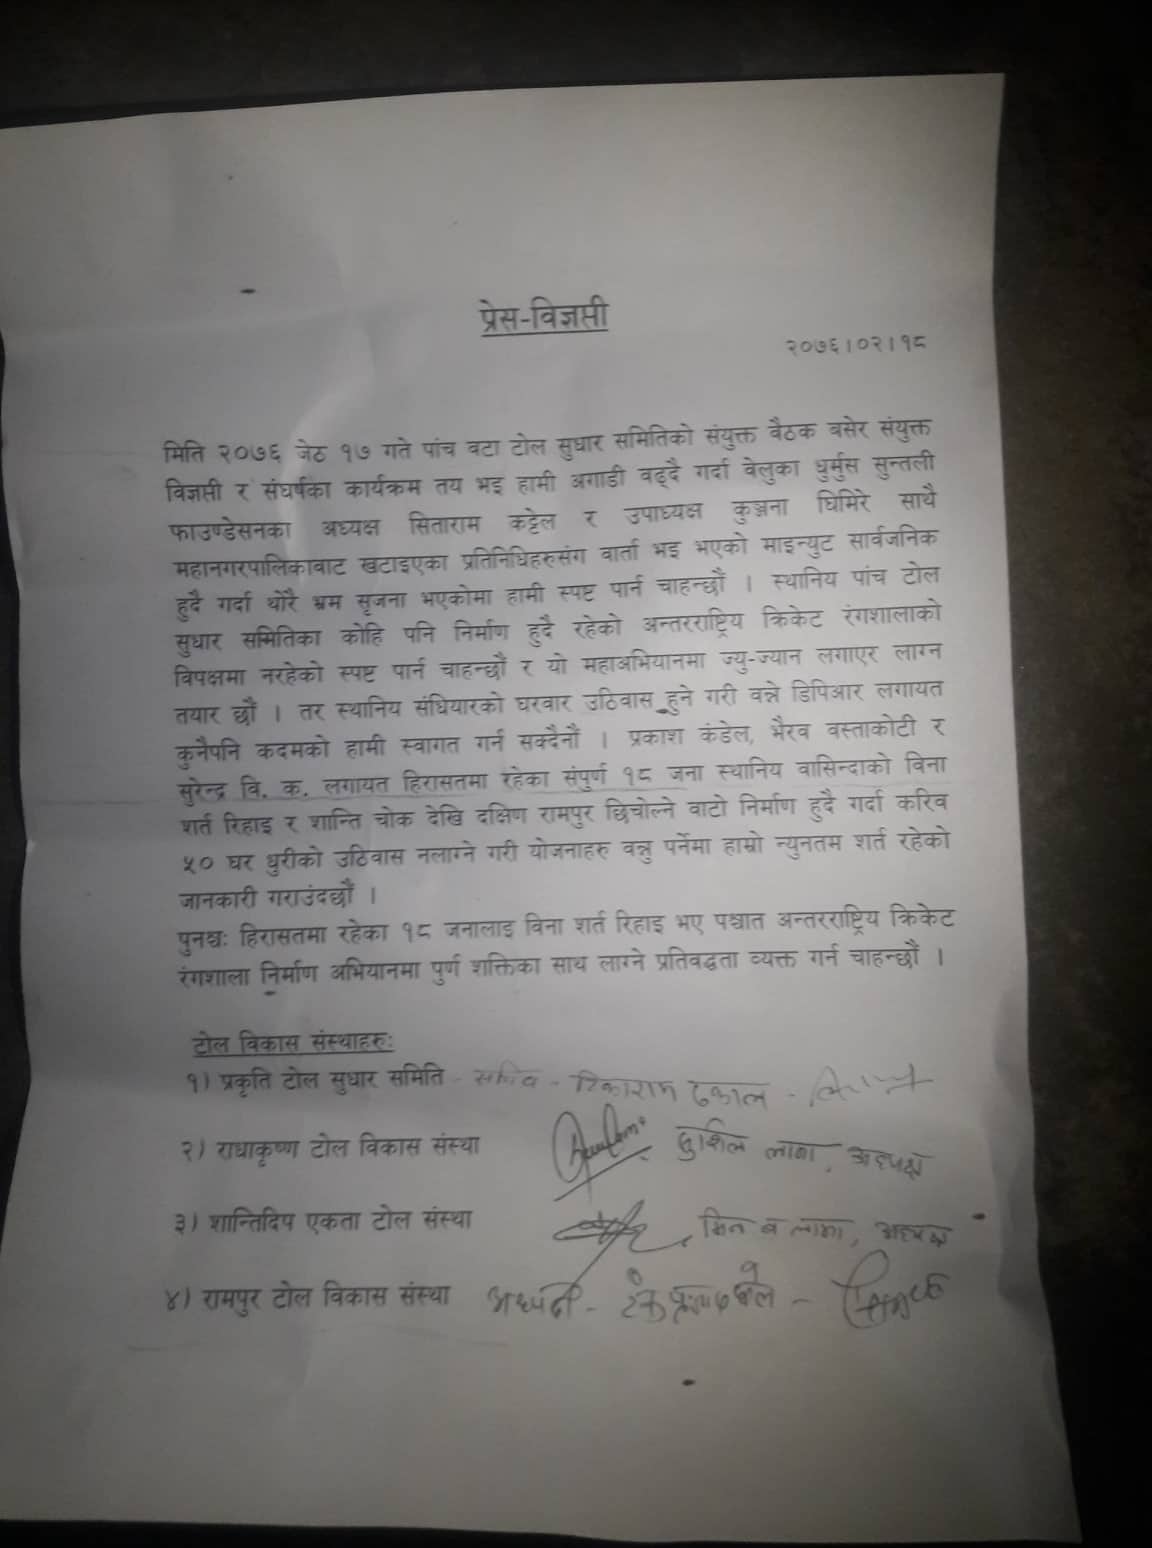 प्रेस-विज्ञप्ती
२०७६।०२।१८
मिति २०७६ जेठ १७ गते पांच वटा टोल सुधार समितिको संयुक्त वैठक वसेर संयुक्त
विज्ञप्ती र संघर्षका कार्यक्रम तय भइ हामी अगाडी वढ्दै गर्दा वेलुका धुर्मुस सुन्तली
फाउण्डेसनका अध्यक्ष सिताराम कट्टेल र उपाध्यक्ष कुञ्जना घिमिरे साथै
महानगरपालिकावाट खटाइएका प्रतिनिधिहरुसंग वार्ता भइ भएको माइन्युट सार्वजनिक
हुदै गर्दा थोरै भ्रम सृजना भएकोमा हामी स्पष्ट पार्न चाहन्छौं । स्थानिय पांच टोल
सुधार समितिका कोहि पनि निर्माण हुदै रहेको अन्तरराष्ट्रिय क्रिकेट रंगशालाको
विपक्षमा नरहेको स्पष्ट पार्न चाहन्छौं र यो महाअभियानमा ज्यु-ज्यान लगाएर लाग्न
तयार छौं । तर स्थानिय संधियारको घरवार उठिवास हुने गरी वन्ने डिपिआर लगायत
कुनैपनि कदमको हामी स्वागत गर्न सक्दैनौं । प्रकाश कंडेल, भैरव वस्ताकोटी र
सुरेन्द्र वि. क. लगायत हिरासतमा रहेका संपुर्ण १८ जना स्थानिय वासिन्दाको विना
शर्त रिहाइ र शान्ति चोक देखि दक्षिण रामपुर छिचोल्ने वाटो निर्माण हुदै गर्दा करिव
५० घर धुरीको उठिवास नलाग्ने गरी योजनाहरु वन्नु पर्नेमा हाम्रो न्युनतम शर्त रहेको
जानकारी गराउंदछौं ।
पुनश्चः हिरासतमा रहेका १८ जनालाइ विना शर्त रिहाइ भए पश्चात अन्तरराष्ट्रिय क्रिकेट
रंगशाला निर्माण अभियानमा पुर्ण शक्तिका साथ लाग्ने प्रतिवद्धता व्यक्त गर्न चाहन्छौं ।
टोल विकास संस्थाहरुः
१) प्रकृति टोल सुधार समिति - सचिव - टिकाराम ढकाल -
२) राधाकृष्ण टोल विकास संस्था सुशिल लामा, अध्यक्ष
३) शान्तिदिप एकता टोल संस्था मिन व लामा, अध्यक्ष
४) रामपुर टोल विकास संस्था